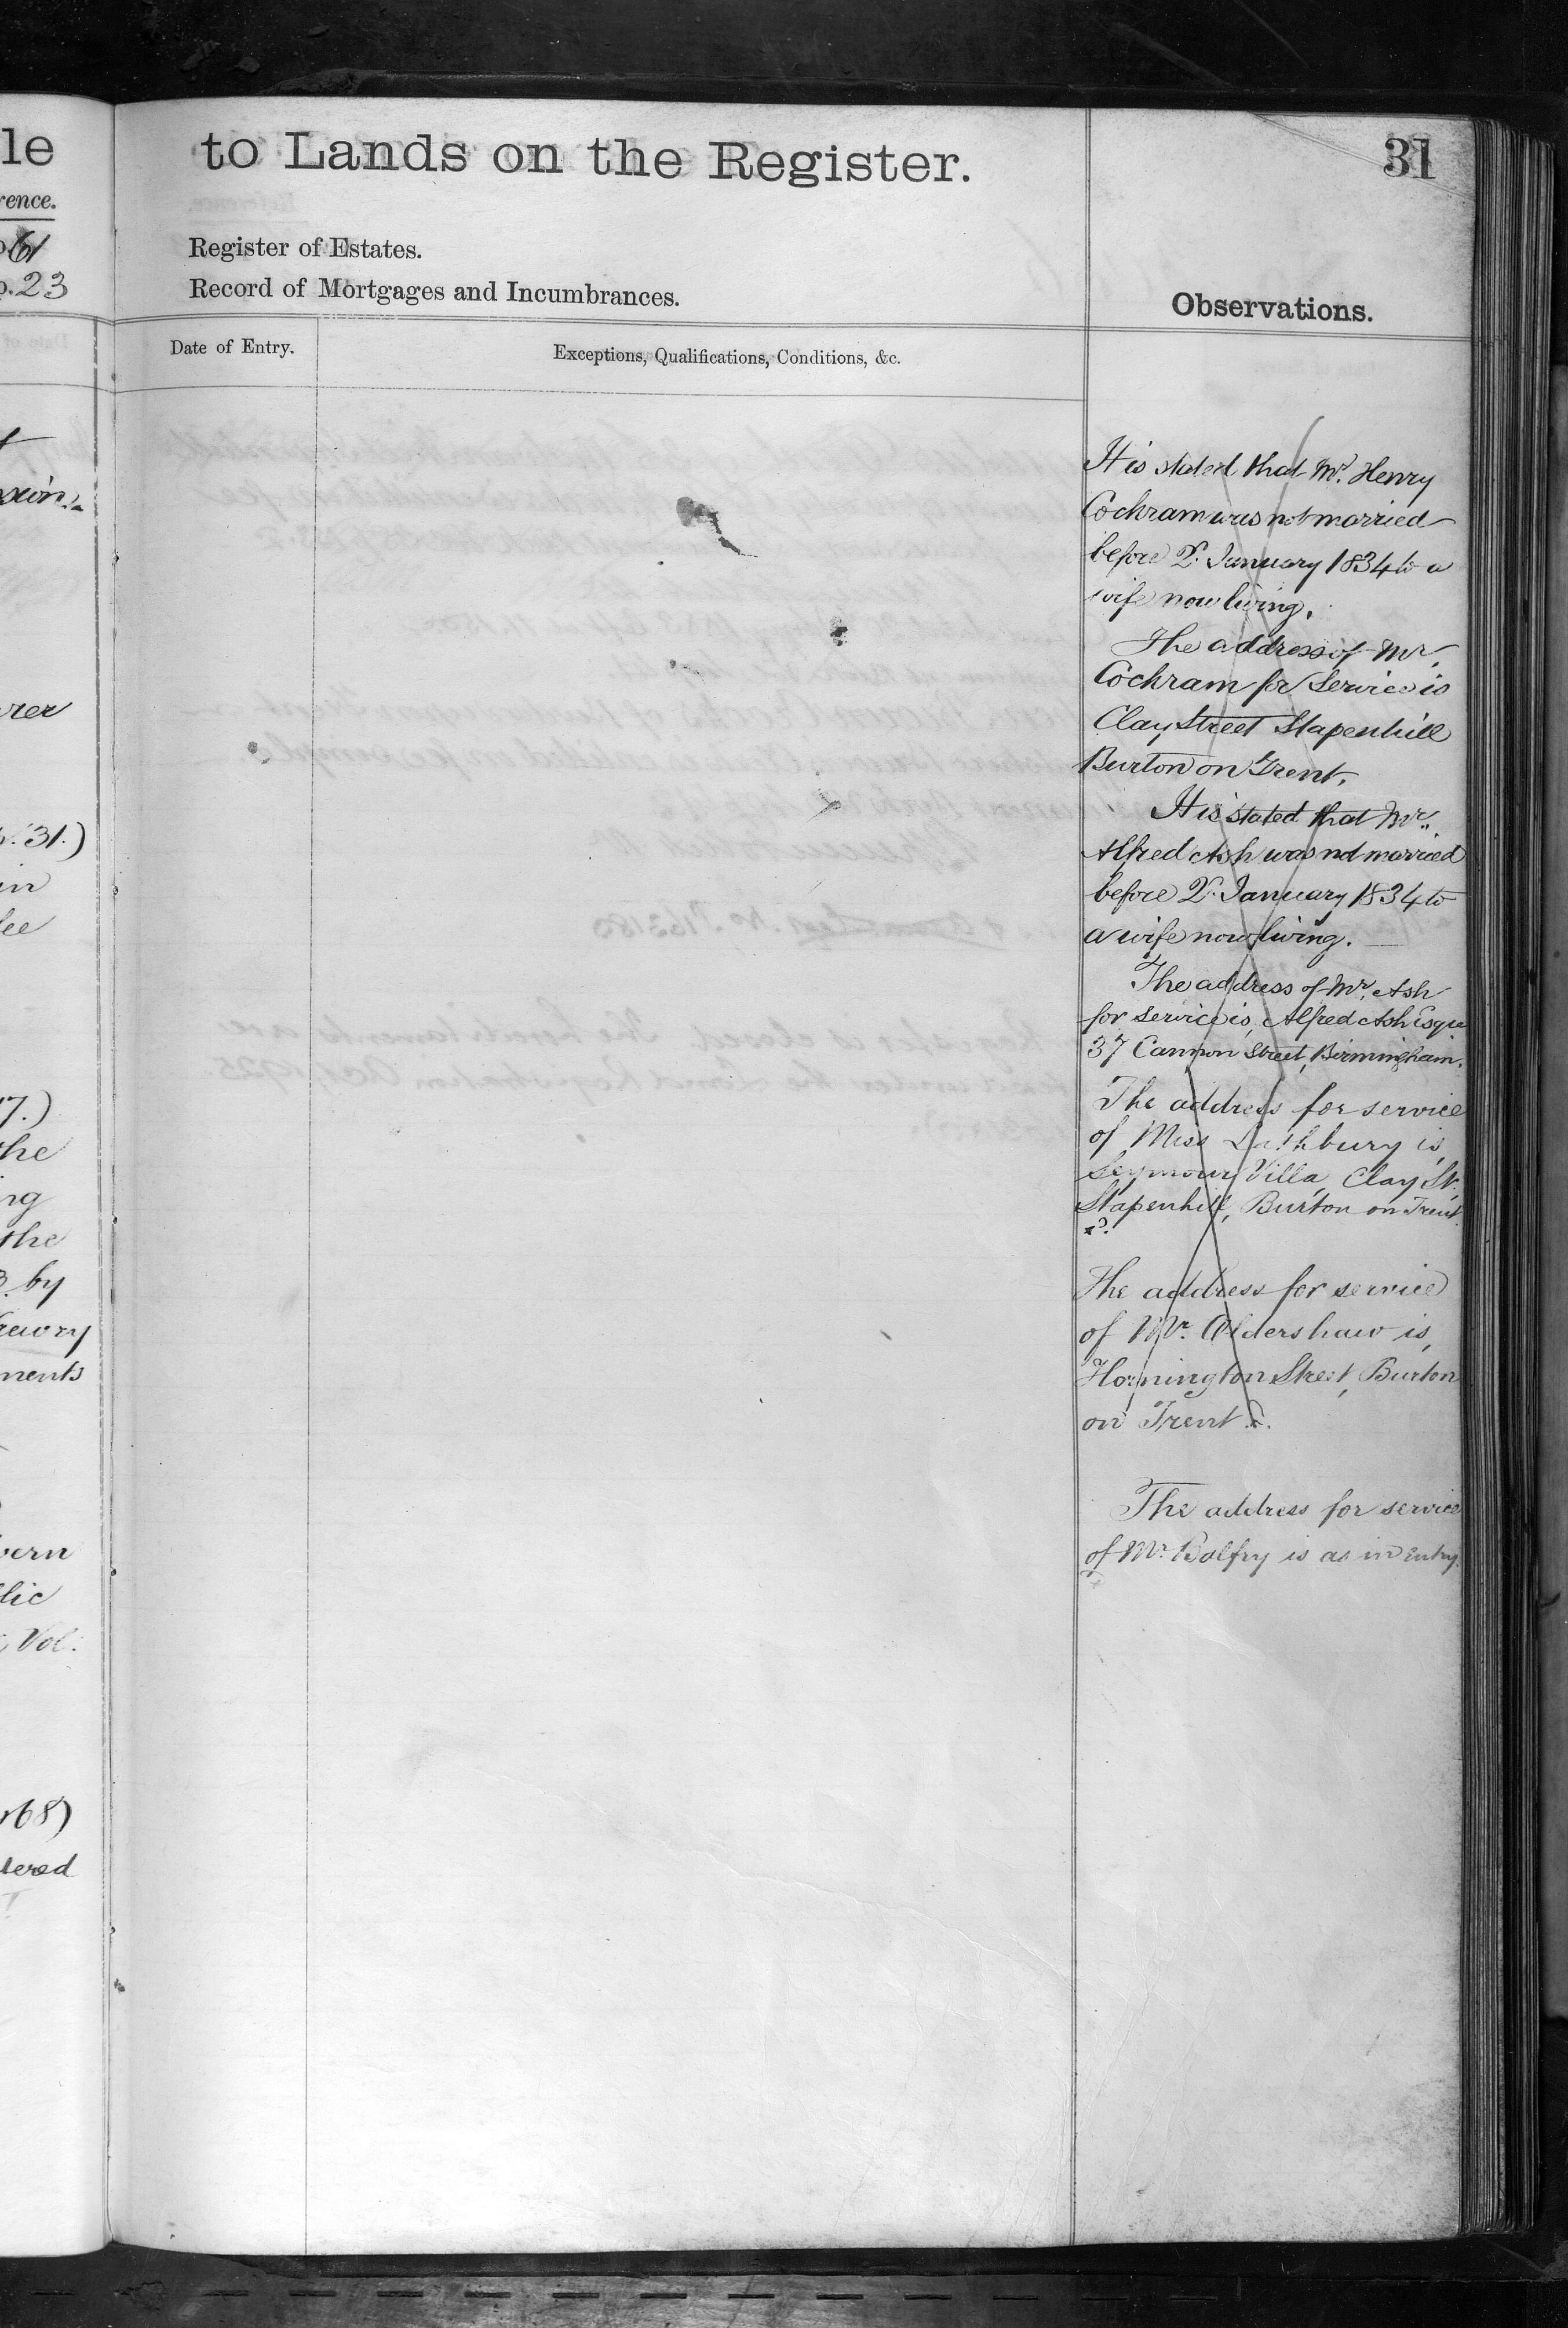 le
rence.
61
p. 23
31.)
in
lee
7.)
the
ng
the
by
ments
lic
Vol.
68)
tered
to Lands on the Register.
31
Register of Estates.
Record of Mortgages and Incumbrances.
Observations.
Date of Entry.
Exceptions, Qualifications, Conditions, &c.
It is stated that Mr. Henry
Cochram was not married
before 2d. January 1834 to a
wife now living.
The address of Mr.
Cochram for Service is
Clay Street Stapenhill
Burton on Trent.
It is stated that Mr.
Alfred Ash was not married
before 2d. January 1834 to
a wife now living.
The address of Mr. Ash
for service is, Alfred Ash Esqre
37 Cannon Street, Birmingham.
The address for service
of Miss Lathbury is,
Seymour Villa, Clay St.,
Stapenhill, Burton on Trent.
The address for service
of Mr. Oldershaw is,
Horninglow Street, Burton
on Trent.
The address for service
of Mr. Balfry is as in Entry.